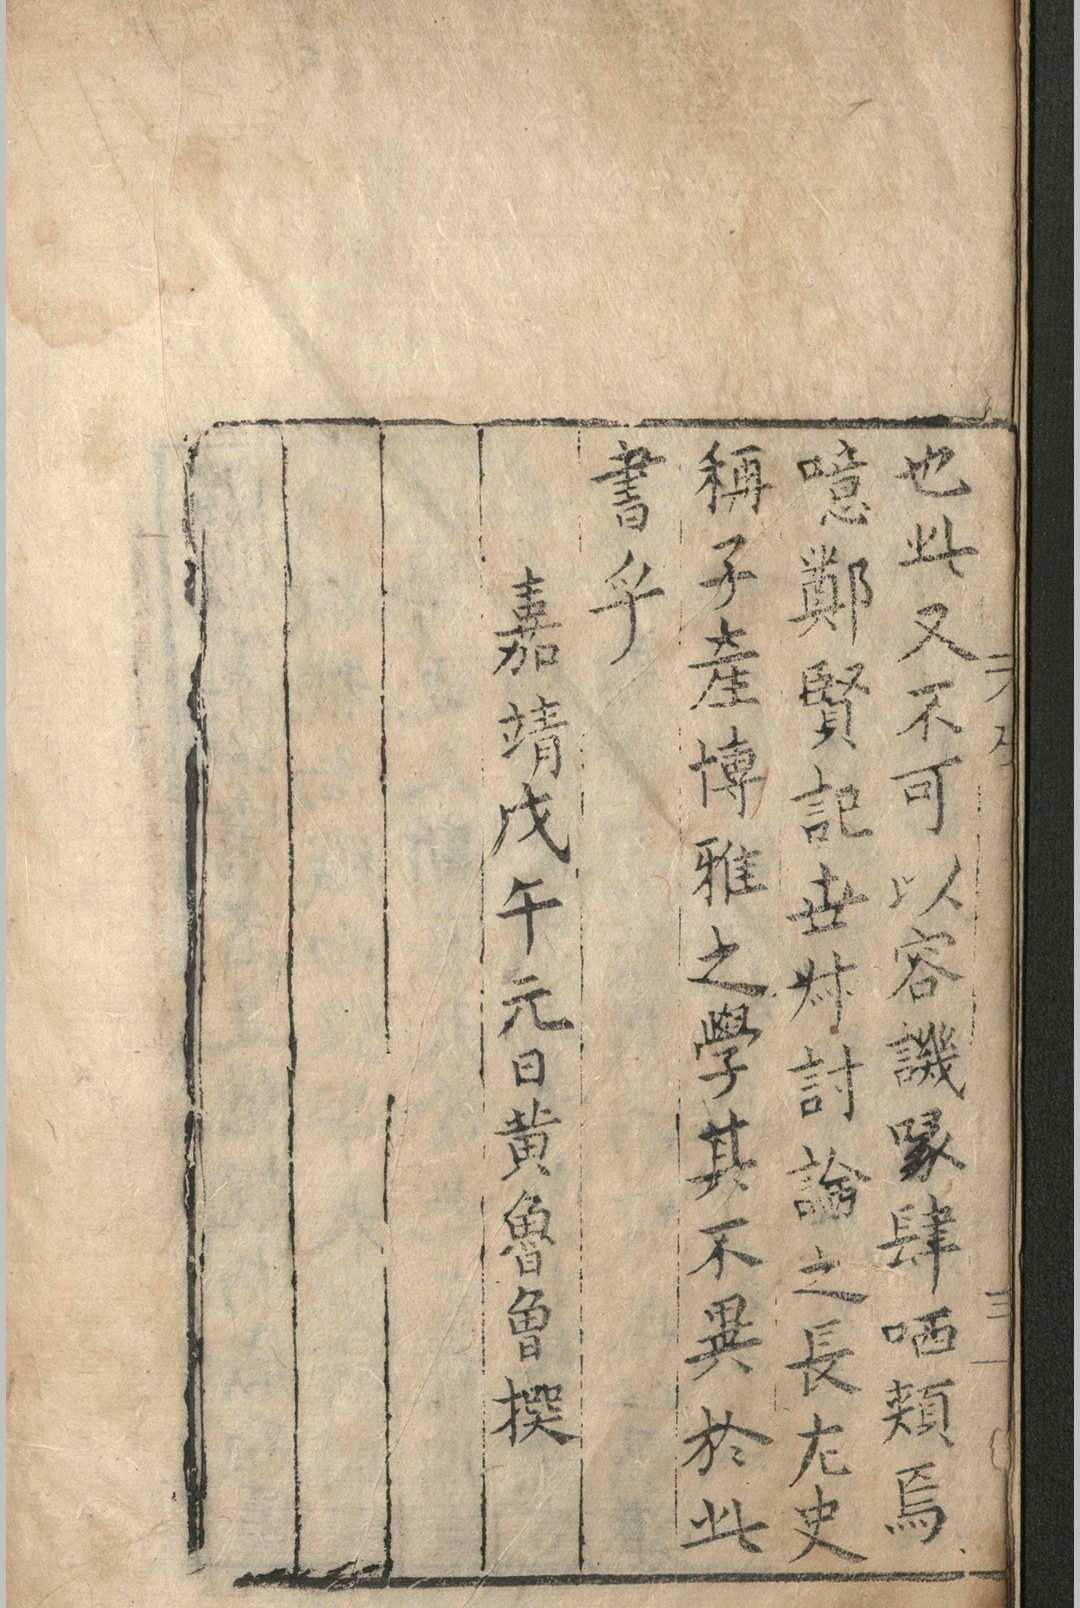 也此又不可以容譏喙肆哂頰焉
噫鄭賢記世叔討論之長左史
稱子產博雅之學其不異於此
書乎
嘉靖戊午元日黃魯曾撰